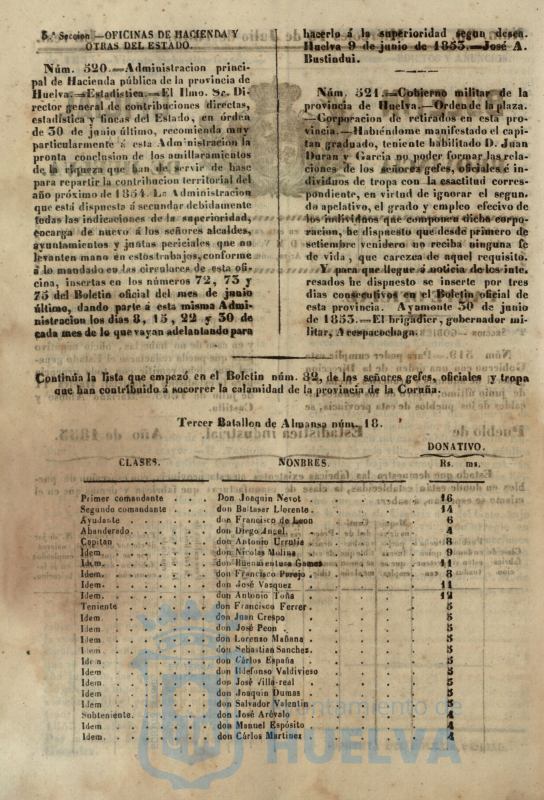 5.ª Seccion.—OFICINAS DE HACIENDA Y
OTRAS DEL ESTADO.
Núm. 520.—Administracion princi-
pal de Hacienda pública de la provincia de
Huelva.—Estadística.—El Ilmo. Sr. Di-
rector general de contribuciones directas,
estadística y fincas del Estado, en órden
de 30 de junio último, recomienda muy
particularmente á esta Administracion la
pronta conclusion de los amillaramientos
de la riqueza que han de servir de base
para repartir la contribucion territorial del
año próximo de 1854. La Administracion
que está dispuesta á secundar debidamente
todas las indicaciones de la superioridad,
encarga de nuevo á los señores alcaldes,
ayuntamientos y juntas periciales que no
levanten mano en estos trabajos, conforme
á lo mandado en las circulares de esta ofi-
cina, insertas en los números 72, 73 y
75 del Boletin oficial del mes de junio
último, dando parte á esta misma Admi-
nistracion los dias 8, 15, 22 y 30 de
cada mes de lo que vayan adelantando para
hacerlo á la superioridad segun desea.
Huelva 9 de junio de 1853.—José A.
Bustindui.
Núm. 521.—Gobierno militar de la
provincia de Huelva.—Orden de la plaza.
—Corporacion de retirados en esta pro-
vincia.—Habiéndome manifestado el capi-
tan graduado, teniente habilitado D. Juan
Duran y Garcia no poder formar las rela-
ciones de los señores gefes, oficiales é in-
dividuos de tropa con la esactitud corres-
pondiente, en virtud de ignorar el segun-
do apelativo, el grado y empleo efectivo de
los individuos que componen dicha corpo-
racion, he dispuesto que desde primero de
setiembre venidero no reciba ninguna fe
de vida, que carezca de aquel requisito.
Y para que llegue á noticia de los inte-
resados he dispuesto se inserte por tres
dias consecutivos en el Boletin oficial de
esta provincia. Ayamonte 30 de junio
de 1853.—El brigadier, gobernador mi-
litar, Arespacochaga.
Continúa la lista que empezó en el Boletin núm. 82, de los señores gefes, oficiales y tropa
que han contribuido á socorrer la calamidad de la provincia de la Coruña.
Tercer Batallon de Almansa núm. 18.
DONATIVO.
CLASES. NONBRES. Rs. ms.
Primer comandante . . . Don Joaquin Nevot . . . 16
Segundo comandante . . . don Baltasar Llorente . . . 14
Ayudante . . . don Francisco de Leon . . . 6
Abanderado . . . don Diego Angel . . . 4
Capitan . . . don Antonio Urrutia . . . 8
Idem . . . don Nicolas Molina . . . 9
Idem . . . don Buenaventura Gomez . . . 11
Idem . . . don Francisco Parejo . . . 8
Idem . . . don José Vazquez . . . 11
Idem . . . don Antonio Toña . . . 12
Teniente . . . don Francisco Ferrer . . . 5
Idem . . . don Juan Crespo . . . 5
Idem . . . don José Peon . . . 5
Idem . . . don Lorenzo Mañana . . . 5
Idem . . . don Sebastian Sanchez . . . 5
Idem . . . don Cárlos España . . . 5
Idem . . . don Ildefonso Valdivieso . . . 5
Idem . . . don José Villa-real . . . 5
Idem . . . don Joaquin Dumas . . . 5
Idem . . . don Salvador Valentin . . . 5
Subteniente . . . don José Arévalo . . . 4
Idem . . . don Manuel Espósito . . . 4
Idem . . . don Cárlos Martinez . . . 4
Ayuntamiento de
HUELVA